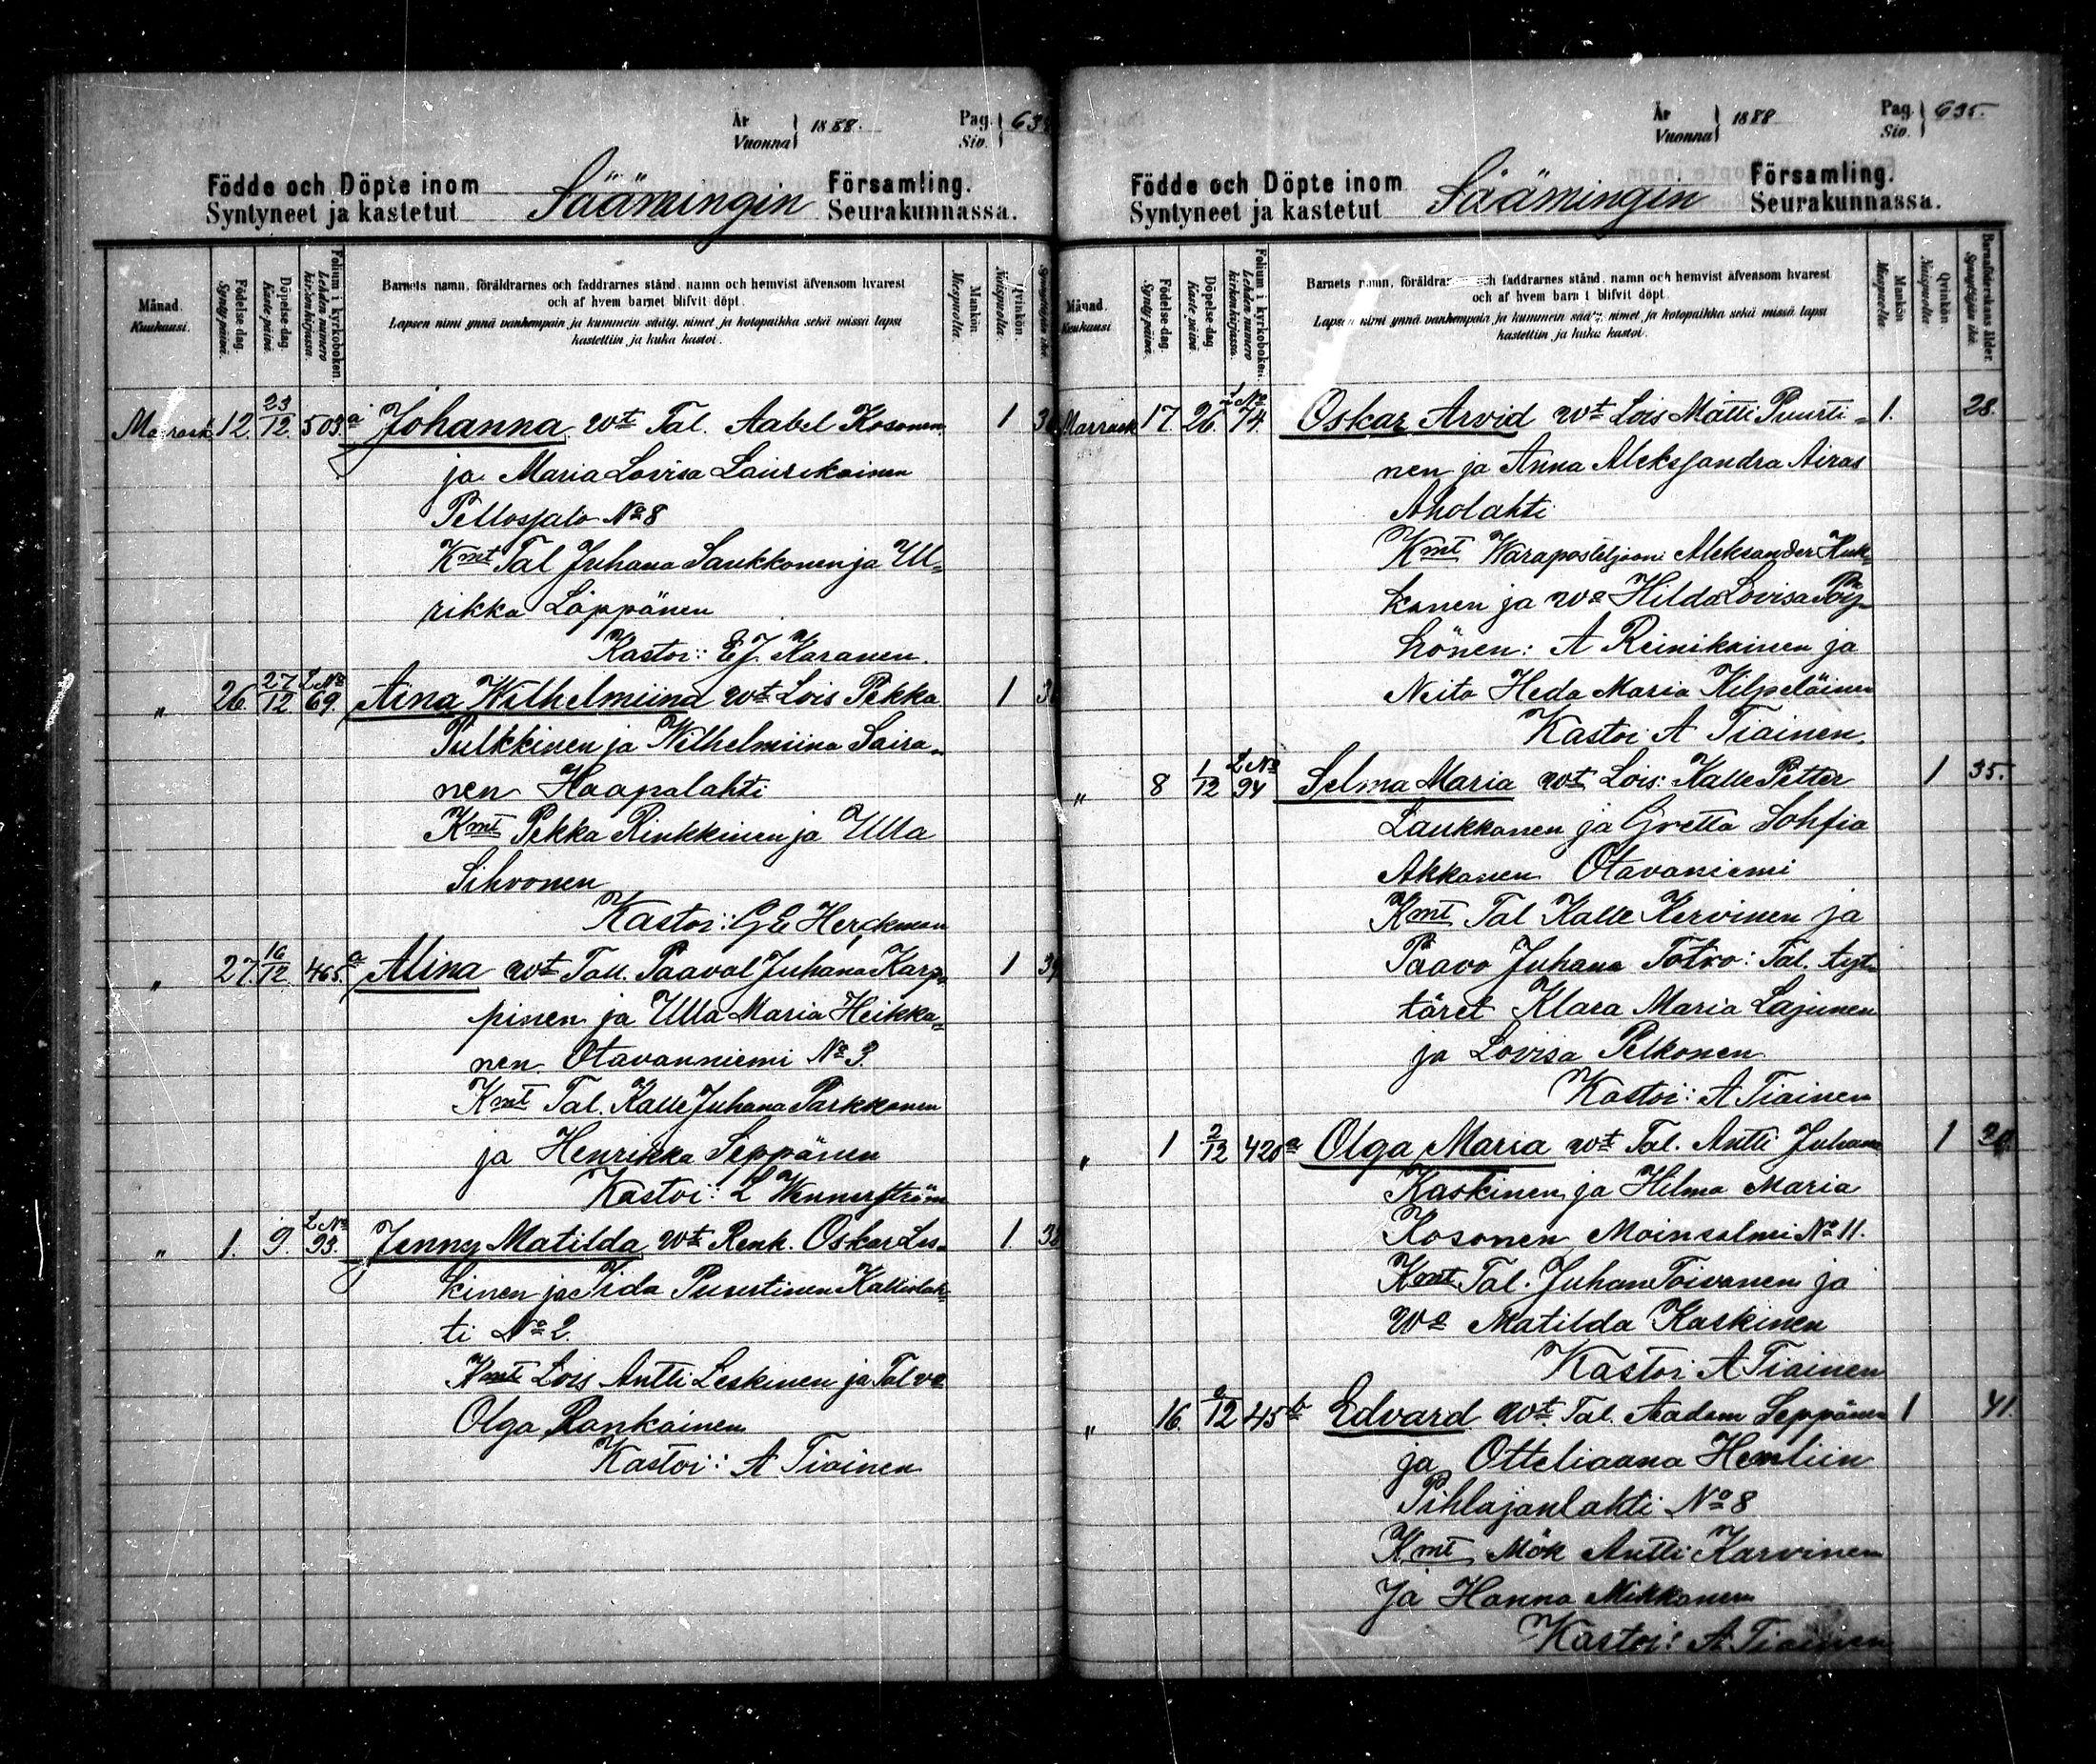 År
Vuonna } 1888.
Pag.
Siv. } 63
Födde och Döpte inom Församling.
Syntyneet ja kastetut Säämingin Seurakunnassa.
Månad. Kuukausi.
Födelse-dag. Syntypäivä.
Döpelse-dag. Kaste-päivä.
Folium i kyrkoboken. Lehden numero kirkonkirjassa.
Barnets namn, föräldrarnes och faddrarnes stånd, namn och hemvist äfvensom hvarest
och af hvem barnet blifvit döpt.
Lapsen nimi ynnä vanhempain ja kummein sääty, nimet ja kotopaikka sekä missä lapsi
kastettiin ja kuka kastoi.
Mankön. Miespuolta.
Qvinkön. Naispuolta.
Marrask. 12. 23/12. 503 a Johanna. wt Tal. Aabel Kosonen 1
ja Maria Lovisa Laurikainen
Pellossalo No 8
Kmt Tal Juhana Saukkonen ja Ul=
rikka Läppänen
Kastoi: EJ Karanen.
" 26. 27/12 L No 69. Aina Wilhelmiina wt Lois Pekka 1
Pulkkinen ja Wilhelmiina Saira=
nen Haapalahti
Kmt Pekka Rinkkinen ja Ulla
Sihvonen
Kastoi: GE Herckman
" 27. 16/12. 465. a Alina wt Tal. Paaval Juhana Karp= 1 39
pinen ja Ulla Maria Heikka=
nen. Otavanniemi No 3.
Kmt Tal. Kalle Juhana Parkkonen
ja Henrikka Seppänen
Kastoi: L Wennerström
" 1. 9. L No 93. Jenny Matilda wt Renk. Oskar Les= 1 38
kinen ja Iida Puurtinen Kallislah=
ti No 2.
Kmt Lois Antti Leskinen ja Tal va
Olga Pankainen
Kastoi: A Tiainen
År
Vuonna } 1888
Pag.
Siv. } 635.
Födde och Döpte inom Församling.
Syntyneet ja kastetut Säämingin Seurakunnassa.
Månad. Kuukausi
Födelse-dag. Syntypäivä.
Döpelse-dag. Kaste-päivä.
Folium i kyrkoboken. Lehden numero kirkonkirjassa.
Barnets namn, föräldrar och faddrarnes stånd, namn och hemvist äfvensom hvarest
och af hvem barn t blifvit döpt.
Lapsen nimi ynnä vanhempain ja kummein sääty, nimet ja kotopaikka sekä missä lapsi
kastettiin ja kuka kastoi.
Mankön Miespuolta
Qvinkön Naispuolta
Barnaföderskans ålder. Synnyttäjän ikä.
Marrask 17. 26. L No 74. Oskar Arvid wt Lois Matti Puurti= 1. 28.
nen ja Anna Aleksandra Airas
Aholahti
Kmt Waraposteljooni Aleksander Huk=
kanen ja wa Hilda Lovisa Pöy=
hönen: A Reinikainen ja
Neito Heda Maria Kilpeläinen
Kastoi A Tiainen.
" 8 1/12 L No 94 Selma Maria wt Lois: Kalle Petter 1 35.
Laukkanen ja Gretta Sohfia
Akkanen Otavaniemi
Kmt Tal Kalle Kervinen ja
Paavo Juhana Totro: Tal. tyt=
täret Klara Maria Lajunen
ja Lovisa Pelkonen
Kastoi: A Tiainen
" 1 2/12 420 a Olga Maria wt Tal. Antti Juhana 1
Kaskinen ja Hilma Maria
Kosonen Moinsalmi No 11.
Kmt Tal. Juhan Toivanen ja
wa Matilda Kaskinen
Kastoi A Tiainen
" 16. 9/12 45 b Edvard wt. Tal. Aadam Seppänen 1 41.
ja Otteliaana Hemliin
Pihlajanlahti No 8
Kmt Mök Antti Karvinen
ja Hanna Mikkonen
Kastoi: A. Tiainen